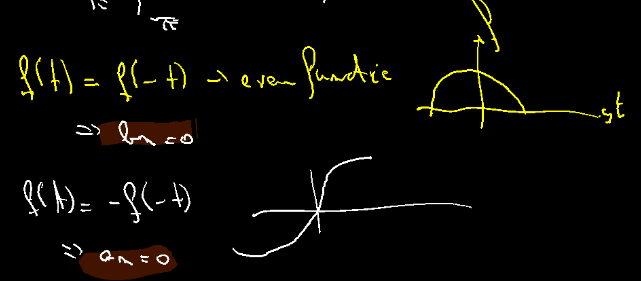 π
f(t) = f(-t) → even functie
t
=> bn = 0
f(t) = -f(-t)
=> an = 0